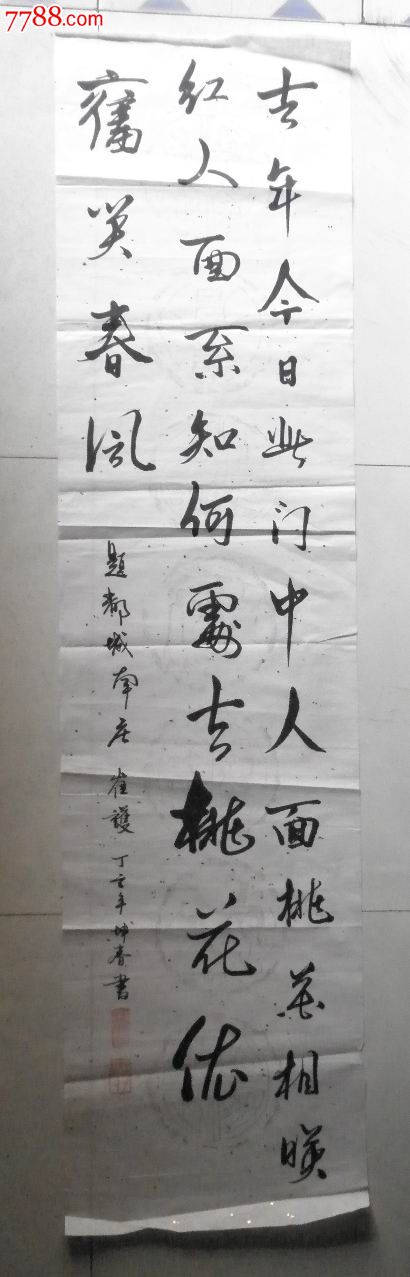 7788.com
去年今日此门中人面桃花相暎
红人面不知何處去桃花依
舊笑春风
题都城南庄 崔護 丁亥年坤春書